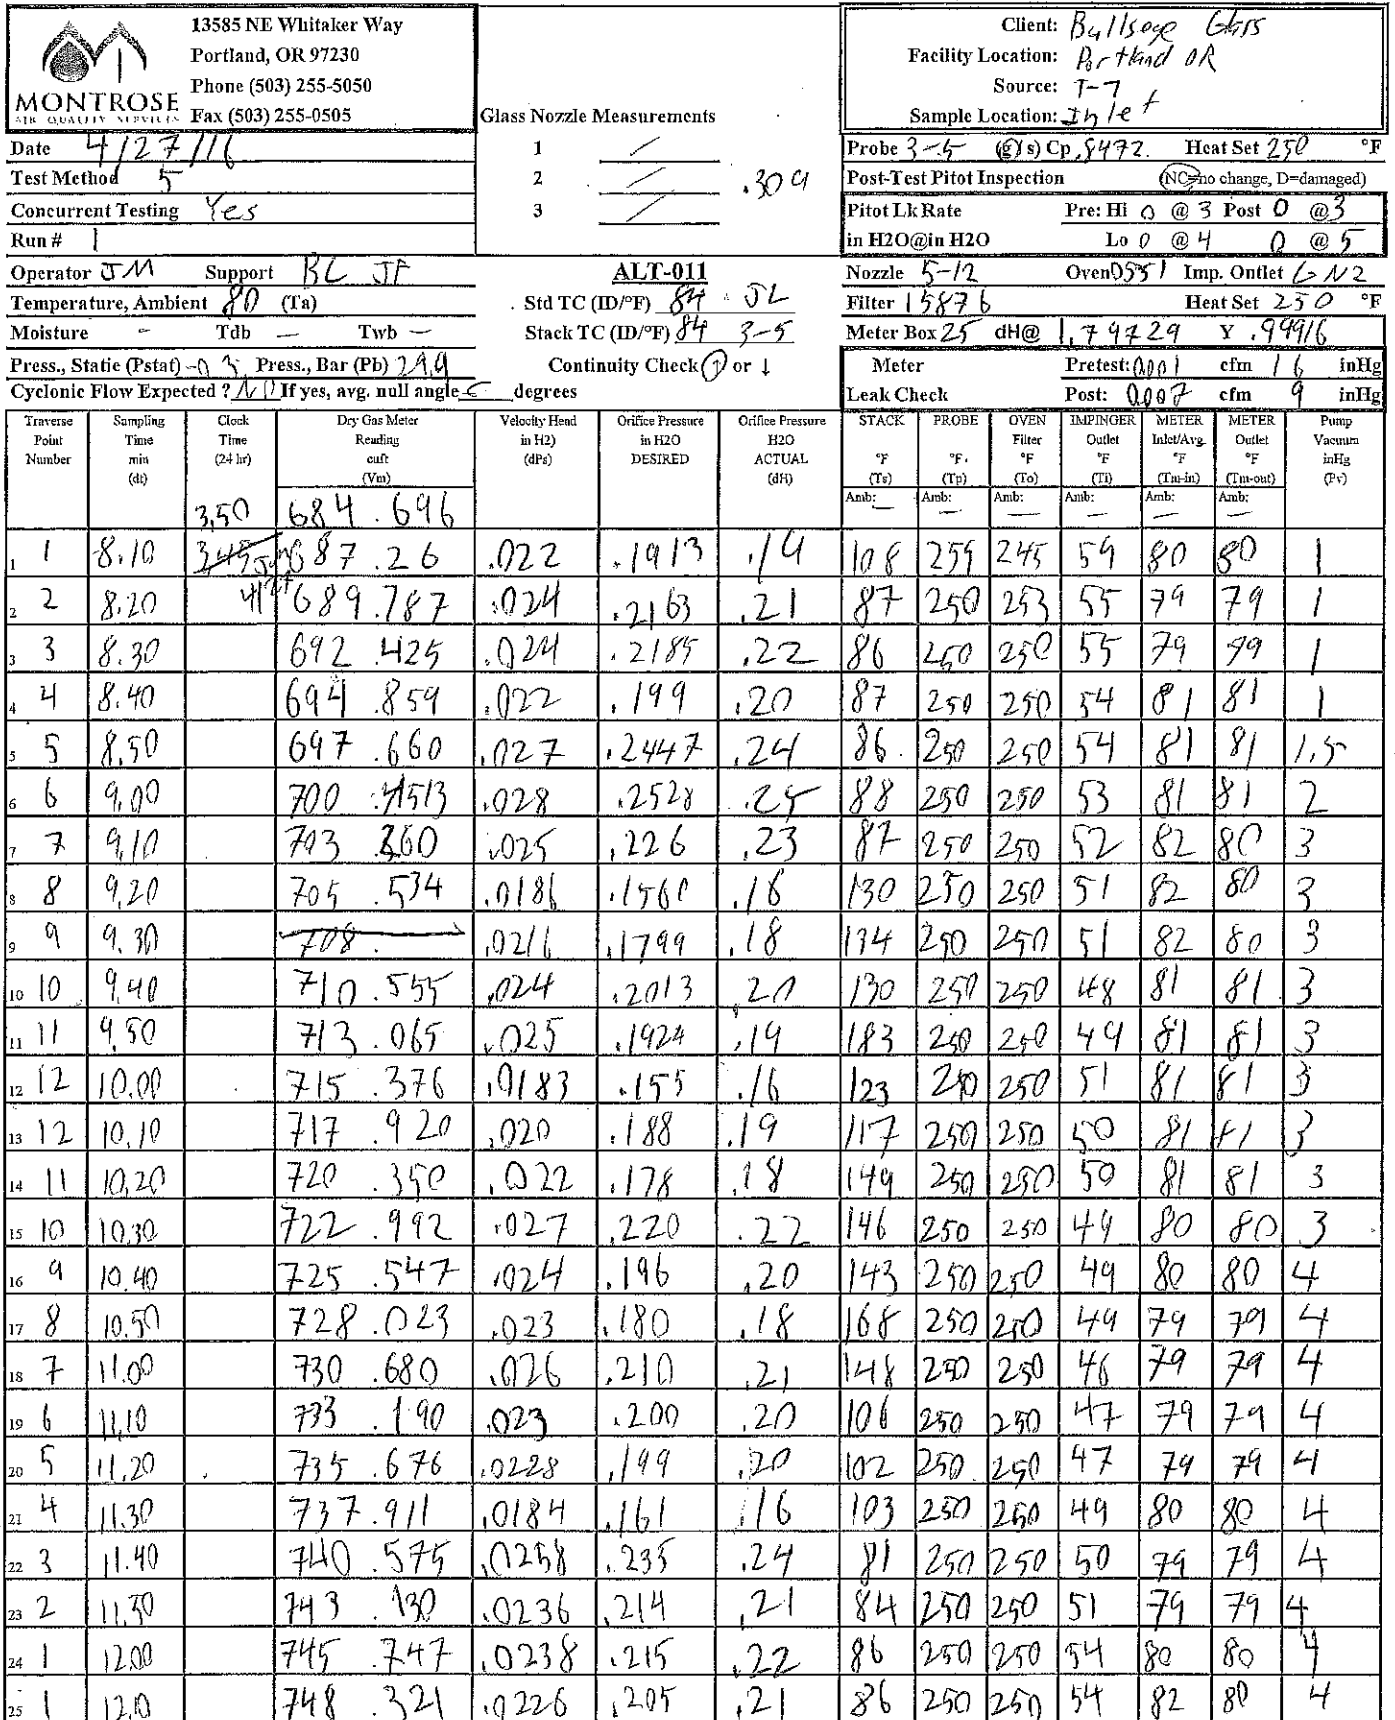 MONTROSE
AIR QUALITY SERVICES
13585 NE Whitaker Way
Portland, OR 97230
Phone (503) 255-5050
Fax (503) 255-0505
Glass Nozzle Measurements
1 /
2 / .309
3 /
Client: Bullseye Glass
Facility Location: Portland OR
Source: T-7
Sample Location: Inlet
Date 4/27/16
Test Method 5
Concurrent Testing Yes
Run # 1
Probe 3-5 (g/s) Cp .8472 Heat Set 250 °F
Post-Test Pitot Inspection (NC=no change, D=damaged)
Pitot Lk Rate Pre: Hi 0 @ 3 Post 0 @ 3
in H2O@in H2O Lo 0 @ 4 0 @ 5
Operator JM Support BL JF
Temperature, Ambient 80 (Ta)
Moisture - Tdb — Twb —
Press., Static (Pstat) -0.3 Press., Bar (Pb) 29.9
Cyclonic Flow Expected ? NO If yes, avg. null angle degrees
ALT-011
Std TC (ID/°F) 84 JL
Stack TC (ID/°F) 84 3-5
Continuity Check ↑ or ↓
Nozzle 5-12 Oven Imp. Outlet
Filter 15876 Heat Set 250 °F
Meter Box 25 dH@ 1.79729 Y .99916
Meter Pretest: 0.001 cfm 16 inHg
Leak Check Post: 0.007 cfm 9 inHg
Traverse Point Number
Sampling Time min (dt)
Clock Time (24 hr)
Dry Gas Meter Reading cuft (Vm)
Velocity Head in H2) (dPs)
Orifice Pressure in H2O DESIRED
Orifice Pressure H2O ACTUAL (dH)
STACK °F (Ts) Amb: —
PROBE °F (Tp) Amb: —
OVEN Filter °F (To) Amb: —
IMPINGER Outlet °F (Ti) Amb: —
METER Inlet/Avg. °F (Tm-in) Amb: —
METER Outlet °F (Tm-out) Amb: —
Pump Vacuum inHg (Pv)
3,50 684.696
1 1 8.10 687.26 .022 .1913 .19 108 259 245 59 80 80 1
2 2 8.20 689.787 .024 .2163 .21 87 250 253 55 79 79 1
3 3 8.30 692.425 .024 .2185 .22 86 250 250 55 79 79 1
4 4 8.40 694.859 .022 .199 .20 87 250 250 54 81 81 1
5 5 8.50 697.660 .027 .2447 .24 86 250 250 54 81 81 1.5
6 6 9.00 700 .028 .2528 .25 88 250 250 53 81 81 2
7 7 9.10 703.260 .025 .226 .23 87 250 250 52 82 80 3
8 8 9.20 705.534 .0186 .1560 .16 130 250 250 51 82 80 3
9 9 9.30 708. .0216 .1799 .18 134 250 250 51 82 80 3
10 10 9.40 710.555 .024 .2013 .20 130 250 250 48 81 81 3
11 11 9.50 713.065 .025 .1924 .19 183 250 250 49 81 81 3
12 12 10.00 715.376 .0183 .155 .16 123 250 250 51 81 81 3
13 12 10.10 717.920 .020 .188 .19 117 250 250 50 81 81 3
14 11 10.20 720.350 .022 .178 .18 149 250 250 50 81 81 3
15 10 10.30 722.992 .027 .220 .22 146 250 250 49 80 80 3
16 9 10.40 725.547 .024 .196 .20 143 250 250 49 80 80 4
17 8 10.50 728.023 .023 .180 .18 168 250 250 49 79 79 4
18 7 11.00 730.680 .026 .210 .21 148 250 250 46 79 79 4
19 6 11.10 733.190 .023 .200 .20 106 250 250 47 79 79 4
20 5 11.20 735.676 .0228 .199 .20 102 250 250 47 79 79 4
21 4 11.30 737.911 .0184 .161 .16 103 250 250 49 80 80 4
22 3 11.40 740.575 .0258 .235 .24 81 250 250 50 79 79 4
23 2 11.50 743.130 .0236 .214 .21 84 250 250 51 79 79 4
24 1 12.00 745.747 .0238 .215 .22 86 250 250 54 80 80 4
25 1 12.10 748.321 .0226 .205 .21 86 250 250 54 82 80 4